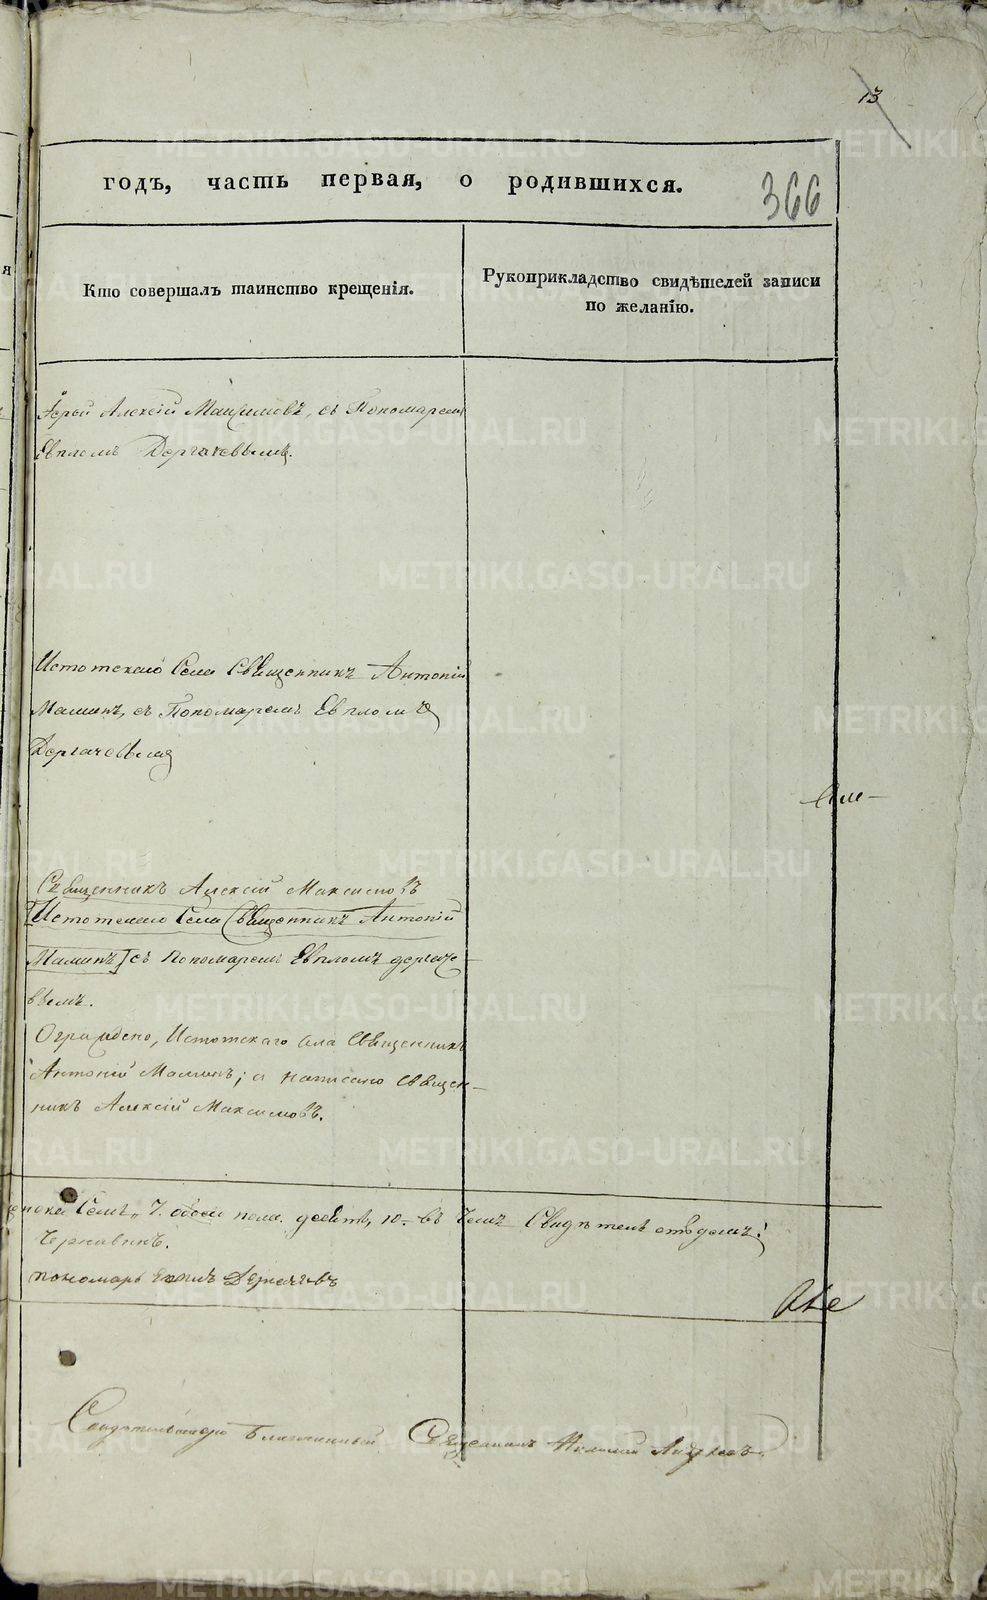 13
годъ, часть первая, о родившихся.
366
Кто совершалъ таинство крещенія.
Рукоприкладство свидѣтелей записи
по желанію.
Іерей Алексій Максимовъ, съ Пономаремъ
Евпломъ Дергачевымъ.
Истотскаго Села Священникъ Антоній
Маминъ, съ Пономаремъ Евпломъ
Дергачевымъ
Священникъ Алексій Максимовъ
Истотскаго Села Священникъ Антоній
Маминъ съ Пономаремъ Евпломъ Дергаче-
вымъ.
Ограждено, Истотскаго села Священникъ
Антоній Маминъ; а написано Священ-
никъ Алексій Максимовъ.
7. обоего пола 10. въ чемъ Свидѣтельствуемъ:
пономарь Евплъ Дергачевъ
Свидѣтельствую Благочинный Священникъ
METRIKI.GASO-URAL.RU